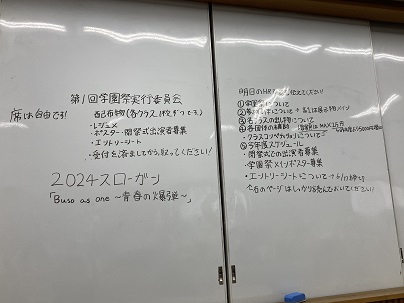 席は自由です!
第1回学園祭実行委員会
配布物(各クラス1枚ずつとる)
・レジュメ
・ポスター・閉祭式出演者募集
・エントリーシート
・受付を済ましてから、取ってください!
2024スローガン
「Buso as one 〜青春の爆弾〜」
明日のHRで
ください!
①学園祭について
について
④各団体の
MAX15万
・クラスコンペティションについて
⑤今年度スケジュール
・閉祭式での出演者募集
・学園祭メインポスター募集
・エントリーシートについて→6/17締切
のページはしっかり読んでおいてください!